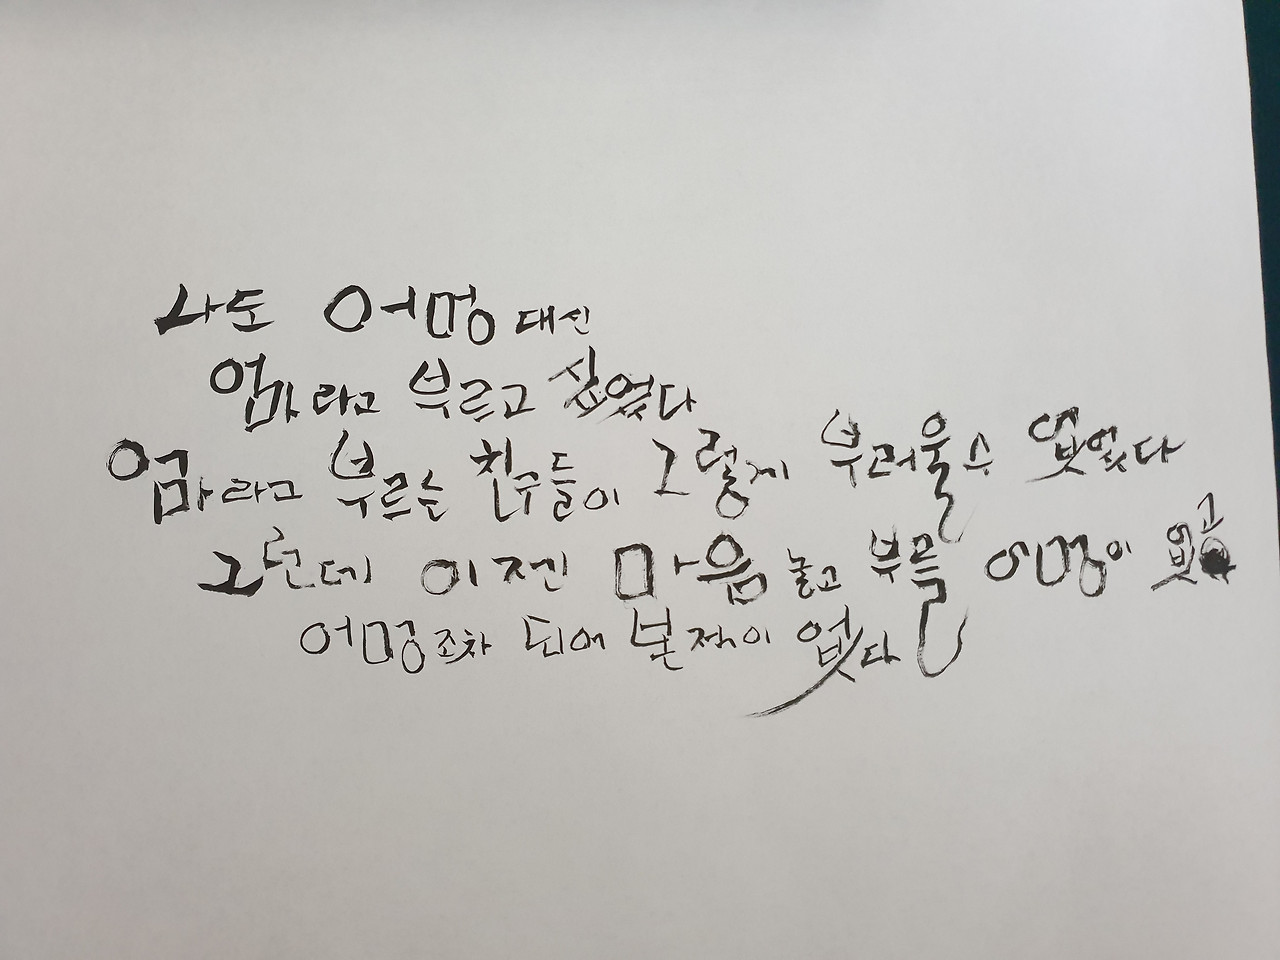 나도 어멍 대신
엄마라고 부르고 싶었다
엄마라고 부르는 친구들이 그렇게 부러울 수 없었다
그런데 이젠 마음 놓고 부를 어멍이 없고
어멍조차 되어 본 적이 없다